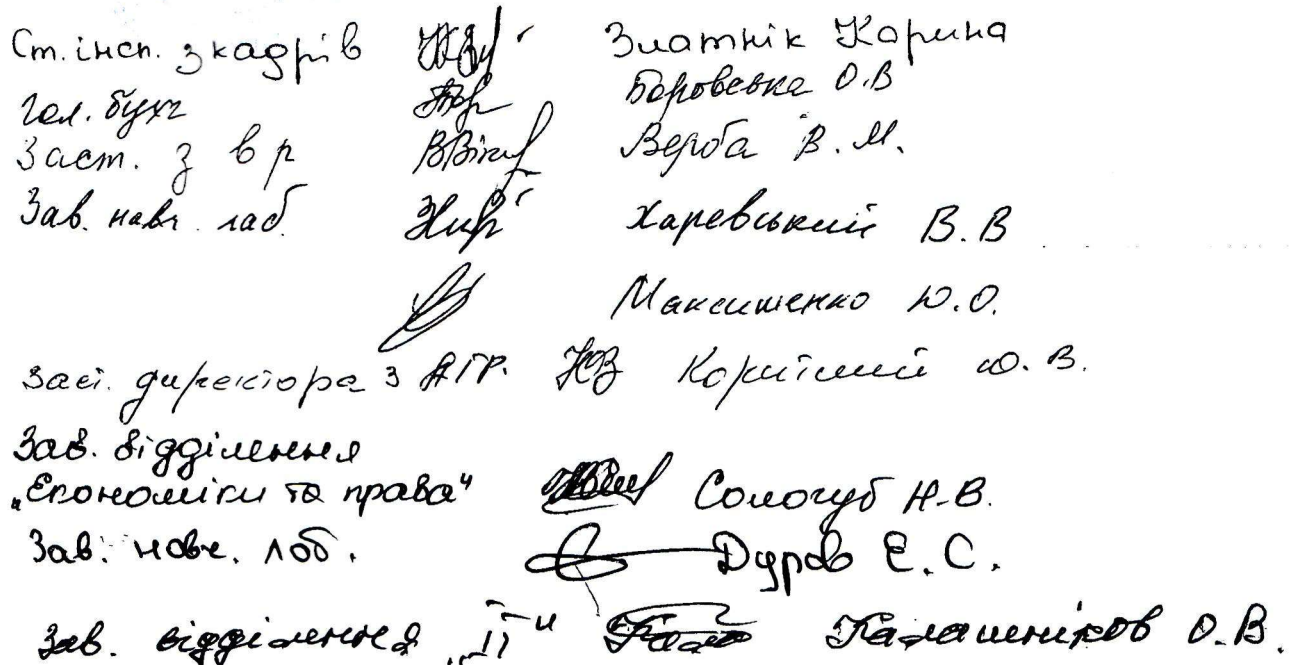 Ст. інсп. з кадрів Златнік Карина
Гол. бухг Боровська О.В
Заст. з в р Верба В.М.
Зав. навч. лаб. Харевський В.В
Максименко Ю.О.
Заст. директора з АГР. Корітний Ю.В.
Зав. відділення
„Економіки та права" Сологуб Н.В.
Зав. навч. лаб. Дуров Е.С.
Зав. відділення „ІТ" Калашніков О.В.